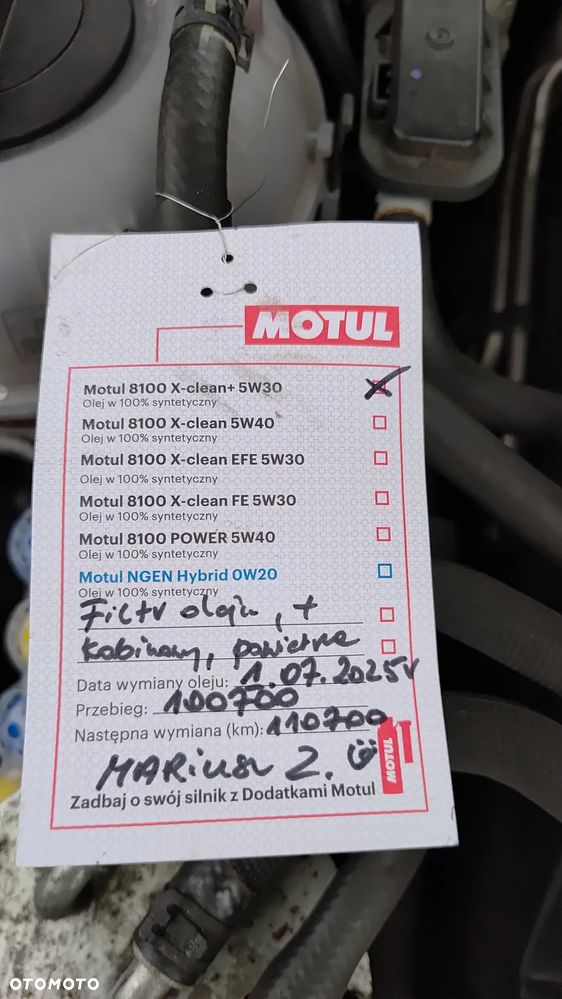 MOTUL
Motul 8100 X-clean+ 5W30
Olej w 100% syntetyczny
Motul 8100 X-clean 5W40
Olej w 100% syntetyczny
Motul 8100 X-clean EFE 5W30
Olej w 100% syntetyczny
Motul 8100 X-clean FE 5W30
Olej w 100% syntetyczny
Motul 8100 POWER 5W40
Olej w 100% syntetyczny
Motul NGEN Hybrid 0W20
Olej w 100% syntetyczny
Filtr oleju, +
kabinowy, powietrza
Data wymiany oleju: 1.07.2025r
Przebieg: 100700
Następna wymiana (km): 110700
MARiusz Z.
MOTUL
Zadbaj o swój silnik z Dodatkami Motul
OTOMOTO